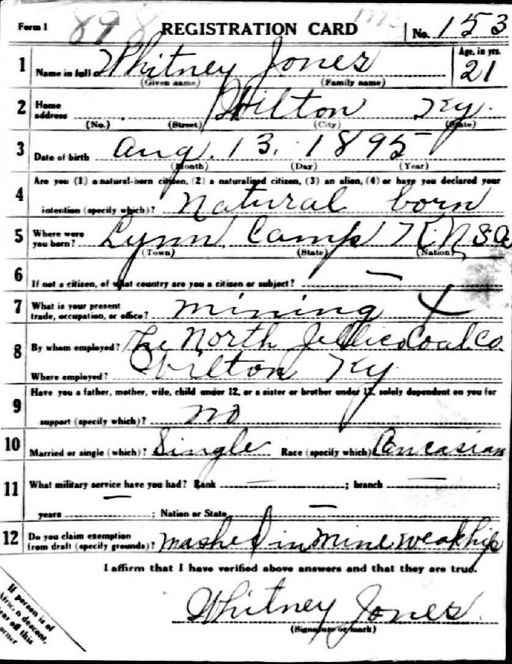 Form 1 898 REGISTRATION CARD 1773 No. 153
1 Name in full Whitney Jones Age, in yrs. 21
(Given name) (Family name)
2 Home address Wilton Ky.
(No.) (Street) (City) (State)
3 Date of birth Aug. 13. 1895
(Month) (Day) (Year)
4 Are you (1) a natural-born citizen, (2) a naturalized citizen, (3) an alien, (4) or have you declared your
intention (specify which)? Natural born
5 Where were you born? Lynn Camp K. U.S.A
(Town) (State) (Nation)
6 If not a citizen, of what country are you a citizen or subject? —
7 What is your present trade, occupation, or office? Mining X
8 By whom employed? The North Jellico Coal Co.
Where employed? Wilton Ky
9 Have you a father, mother, wife, child under 12, or a sister or brother under 12, solely dependent on you for
support (specify which)? no
10 Married or single (which)? Single Race (specify which) Caucasian
11 What military service have you had? Rank — ; branch — ;
years — ; Nation or State —
12 Do you claim exemption from draft (specify grounds)? mashed in mine weak hip
I affirm that I have verified above answers and that they are true.
Whitney Jones.
(Signature or mark)
If person is of
descent,
off this
corner